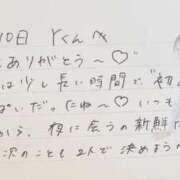 10日 Yくんへ
ありがとう〜♡
は少し長い時間で、初
ぱいだったね〜♡ いつも
う。夜に会うの新鮮だ
次のことも2人で決めようね